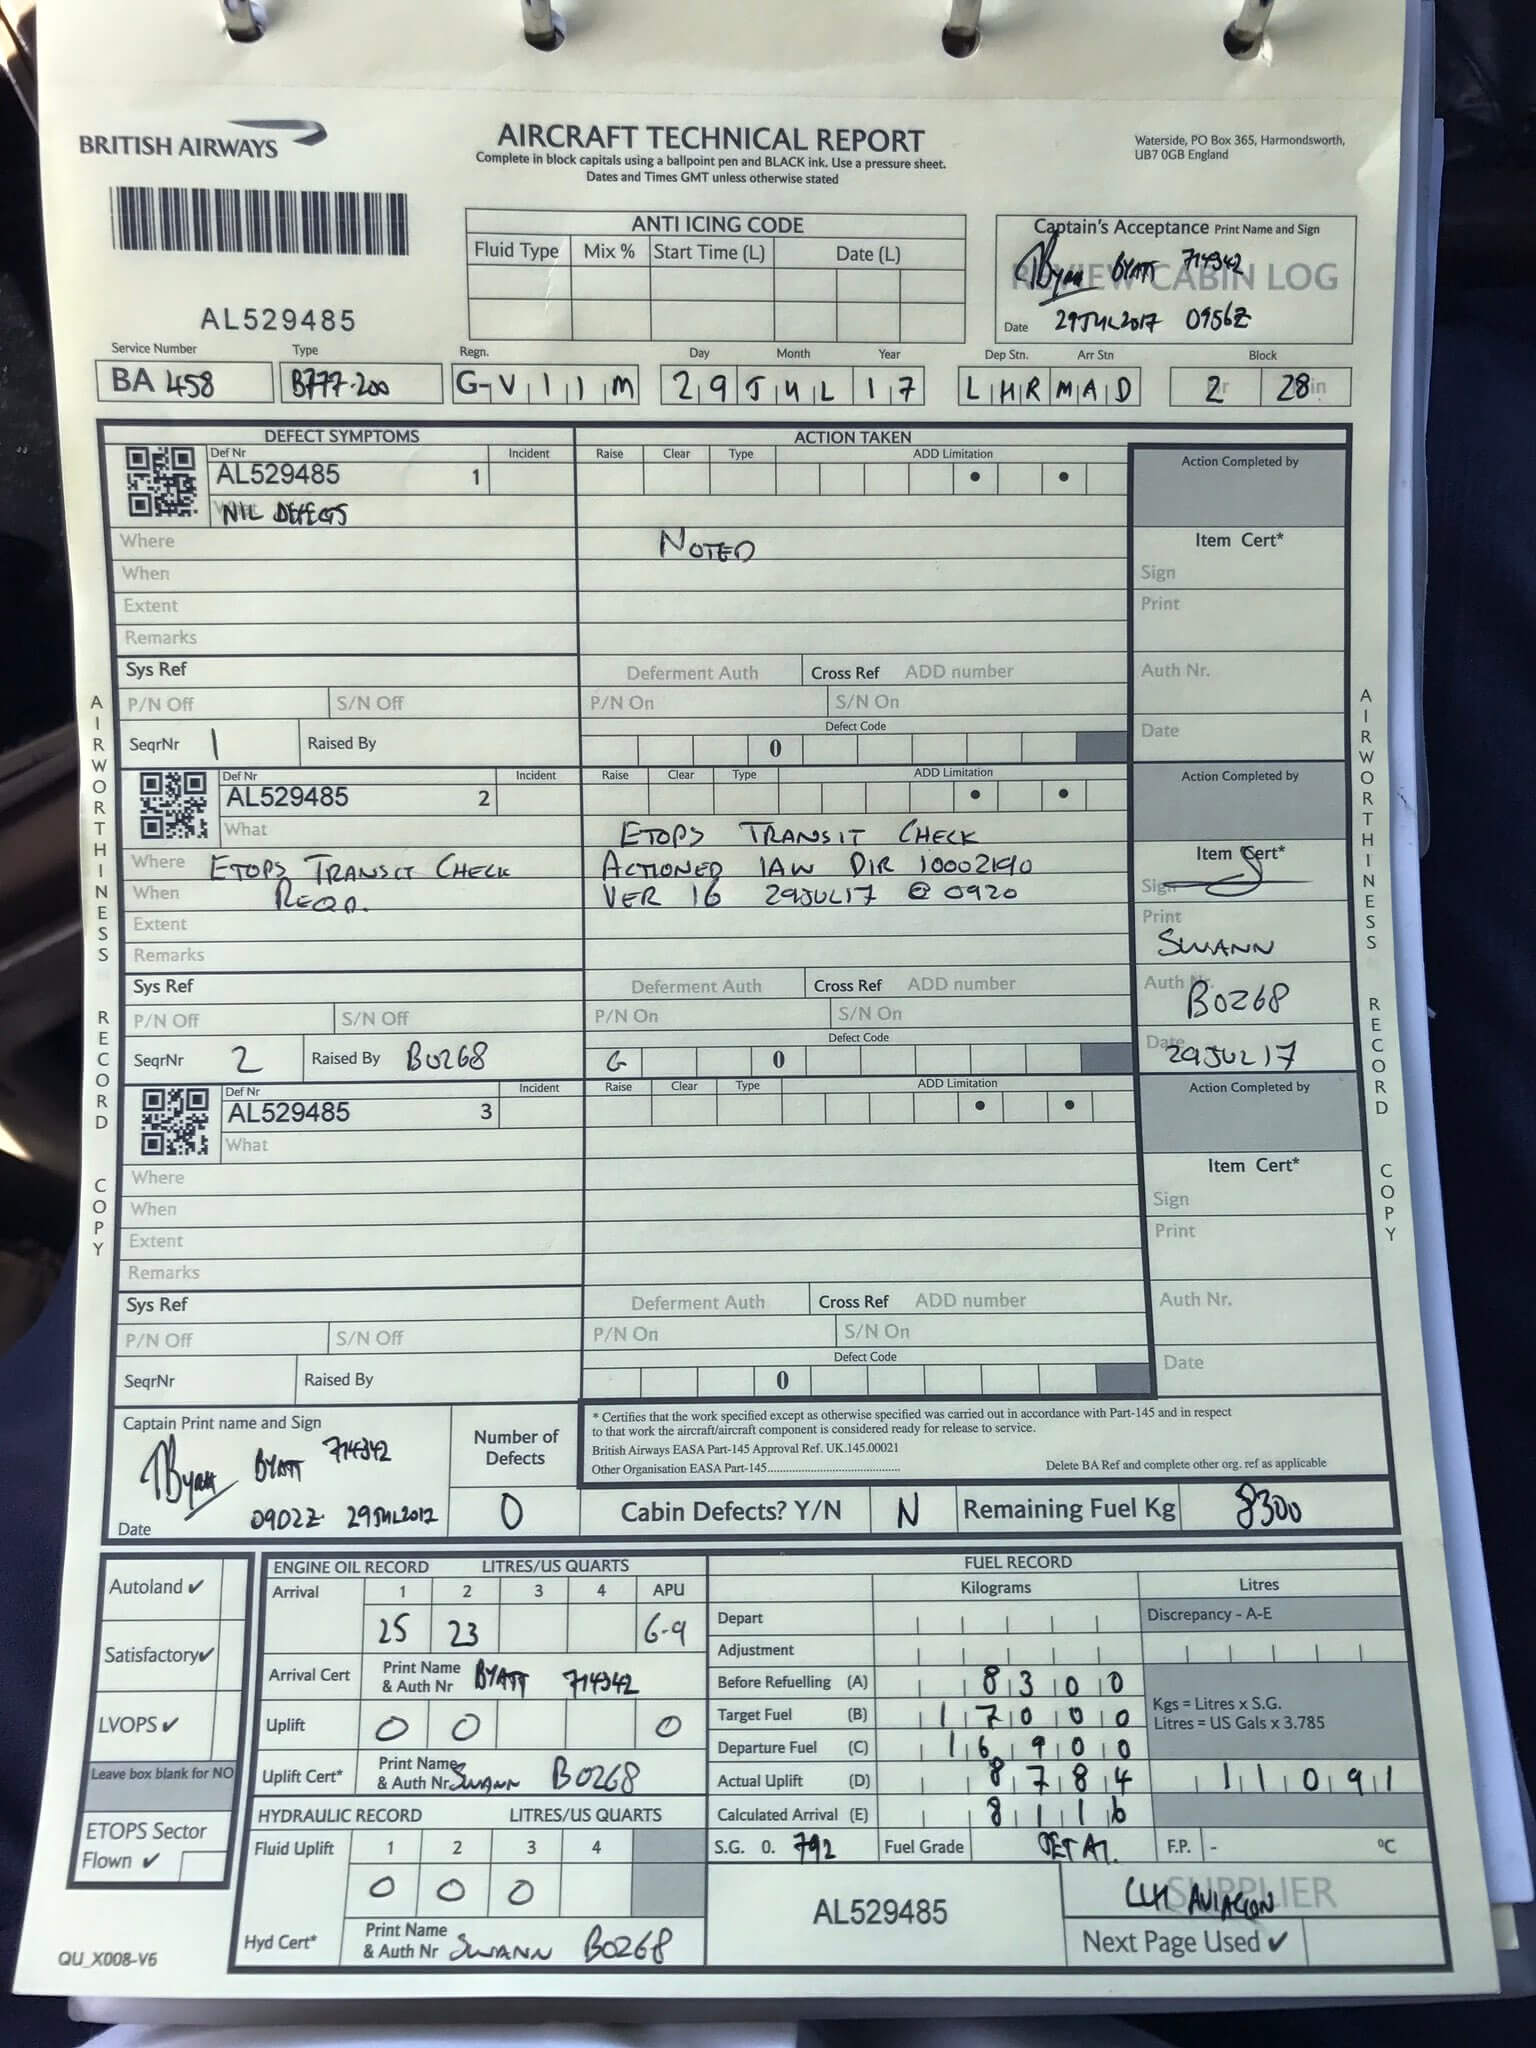 BRITISH AIRWAYS
AIRCRAFT TECHNICAL REPORT
Complete in block capitals using a ballpoint pen and BLACK ink. Use a pressure sheet.
Dates and Times GMT unless otherwise stated
Waterside, PO Box 365, Harmondsworth,
UB7 0GB England
AL529485
ANTI ICING CODE
Fluid Type Mix % Start Time (L) Date (L)
Captain's Acceptance Print Name and Sign
BYATT 714342
REVIEW CABIN LOG
Date 29JUL2017 0956Z
Service Number Type Regn. Day Month Year Dep Stn. Arr Stn Block
BA 458 B777-200 G-VIIM 29 JUL 17 LHR MAD 2 28
DEFECT SYMPTOMS ACTION TAKEN
Def Nr Incident Raise Clear Type ADD Limitation Action Completed by
AL529485 1
What NIL DEFECTS
Where NOTED Item Cert*
When Sign
Extent Print
Remarks
Sys Ref Deferment Auth Cross Ref ADD number Auth Nr.
P/N Off S/N Off P/N On S/N On
Defect Code
SeqrNr 1 Raised By 0 Date
Def Nr Incident Raise Clear Type ADD Limitation Action Completed by
AL529485 2
What ETOPS TRANSIT CHECK
Where ETOPS TRANSIT CHECK ACTIONED IAW DIR 10002190 Item Cert*
When REQD. VER 16 29JUL17 @ 0920 Sign
Extent Print
Remarks SWANN
Sys Ref Deferment Auth Cross Ref ADD number Auth Nr.
B0268
P/N Off S/N Off P/N On S/N On
Defect Code
SeqrNr 2 Raised By B0268 G 0 Date 29JUL17
Def Nr Incident Raise Clear Type ADD Limitation Action Completed by
AL529485 3
What
Where Item Cert*
When Sign
Extent Print
Remarks
Sys Ref Deferment Auth Cross Ref ADD number Auth Nr.
P/N Off S/N Off P/N On S/N On
Defect Code
SeqrNr Raised By 0 Date
AIRWORTHINESS RECORD COPY
AIRWORTHINESS RECORD COPY
Captain Print name and Sign
BYATT 714342
Date 0902Z 29JUL2017
Number of Defects
0
* Certifies that the work specified except as otherwise specified was carried out in accordance with Part-145 and in respect
to that work the aircraft/aircraft component is considered ready for release to service.
British Airways EASA Part-145 Approval Ref. UK.145.00021
Other Organisation EASA Part-145............................................ Delete BA Ref and complete other org. ref as applicable
Cabin Defects? Y/N N Remaining Fuel Kg 8300
Autoland ✓
Satisfactory ✓
LVOPS ✓
Leave box blank for NO
ETOPS Sector
Flown ✓
ENGINE OIL RECORD LITRES/US QUARTS
Arrival 1 2 3 4 APU
25 23 6-9
Arrival Cert Print Name & Auth Nr BYATT 714342
Uplift 0 0 0
Uplift Cert* Print Name & Auth Nr SWANN B0268
HYDRAULIC RECORD LITRES/US QUARTS
Fluid Uplift 1 2 3 4
0 0 0
Hyd Cert* Print Name & Auth Nr SWANN B0268
FUEL RECORD
Kilograms Litres
Depart Discrepancy - A-E
Adjustment
Before Refuelling (A) 8300
Target Fuel (B) 17000
Departure Fuel (C) 16900
Kgs = Litres x S.G.
Litres = US Gals x 3.785
Actual Uplift (D) 8784 11091
Calculated Arrival (E) 8116
S.G. 0. 792 Fuel Grade JET A1. F.P. - °C
AL529485
SUPPLIER
AVIATION
Next Page Used ✓
QU_X008-V6